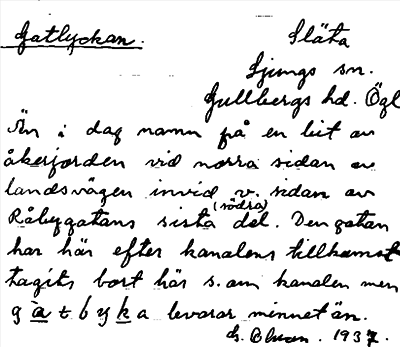 Gatlyckan. Släta
Ljungs sn.
Gullbergs hd. Ögl
Än i dag namn på en bit av
åkerjorden vid norra sidan av
landsvägen invid v. sidan av
Råbygatans sista (södra) del. Den gatan
har här efter kanalens tillkomst
tagits bort här s. om kanalen men
g à t b y k a levarar minnet än.
1937.